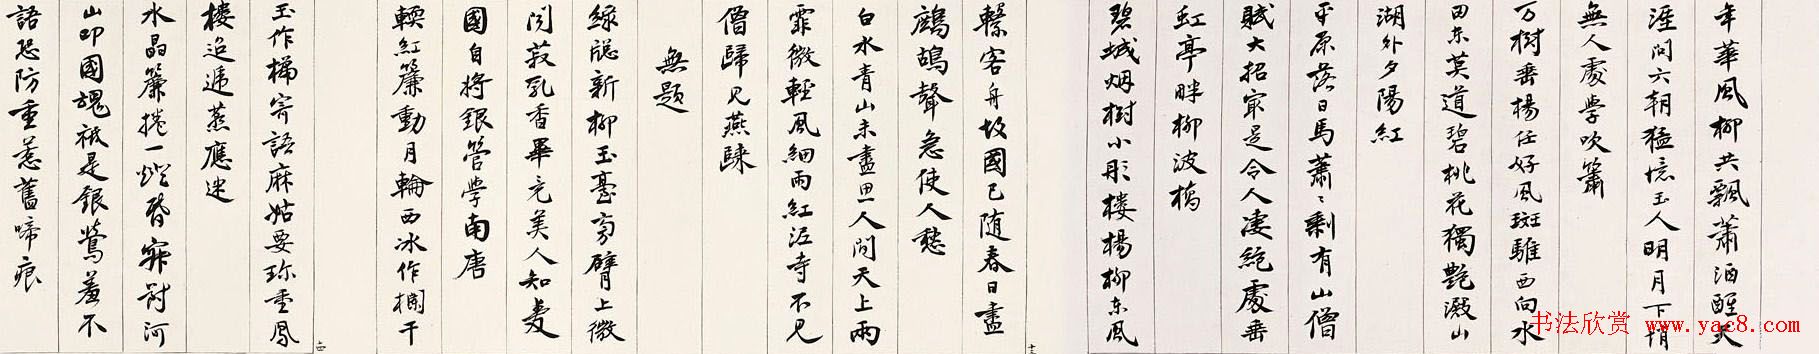 年華風柳共飄蕭酒醒天
涯問六朝猛憶玉人明月下悄
無人處學吹簫
万樹垂楊任好風斑騅西向水
田東莫道碧桃花獨艷澱山
湖外夕陽紅
平原落日馬蕭〻剩有山僧
賦大招最是令人凄絕處垂
虹亭畔柳波橋
碧城烟樹小彤樓楊柳東風
繫客舟故國已隨春日盡
鷓鴣聲急使人愁
白水青山未盡思人間天上兩
霏微輕風細雨紅泥寺不見
僧歸見燕歸
無題
綠窗新柳玉臺旁臂上微
聞菽乳香畢竟美人知愛
國自將銀管學南唐
軟紅簾動月輪西冰作欄干
玉作梯寄語麻姑要珍重鳳
樓迢遞燕應迷
水晶簾捲一燈昏寂對河
山叩國魂祇是銀鶯羞不
語恐防重惹舊啼痕
书法欣赏 www.yac8.com